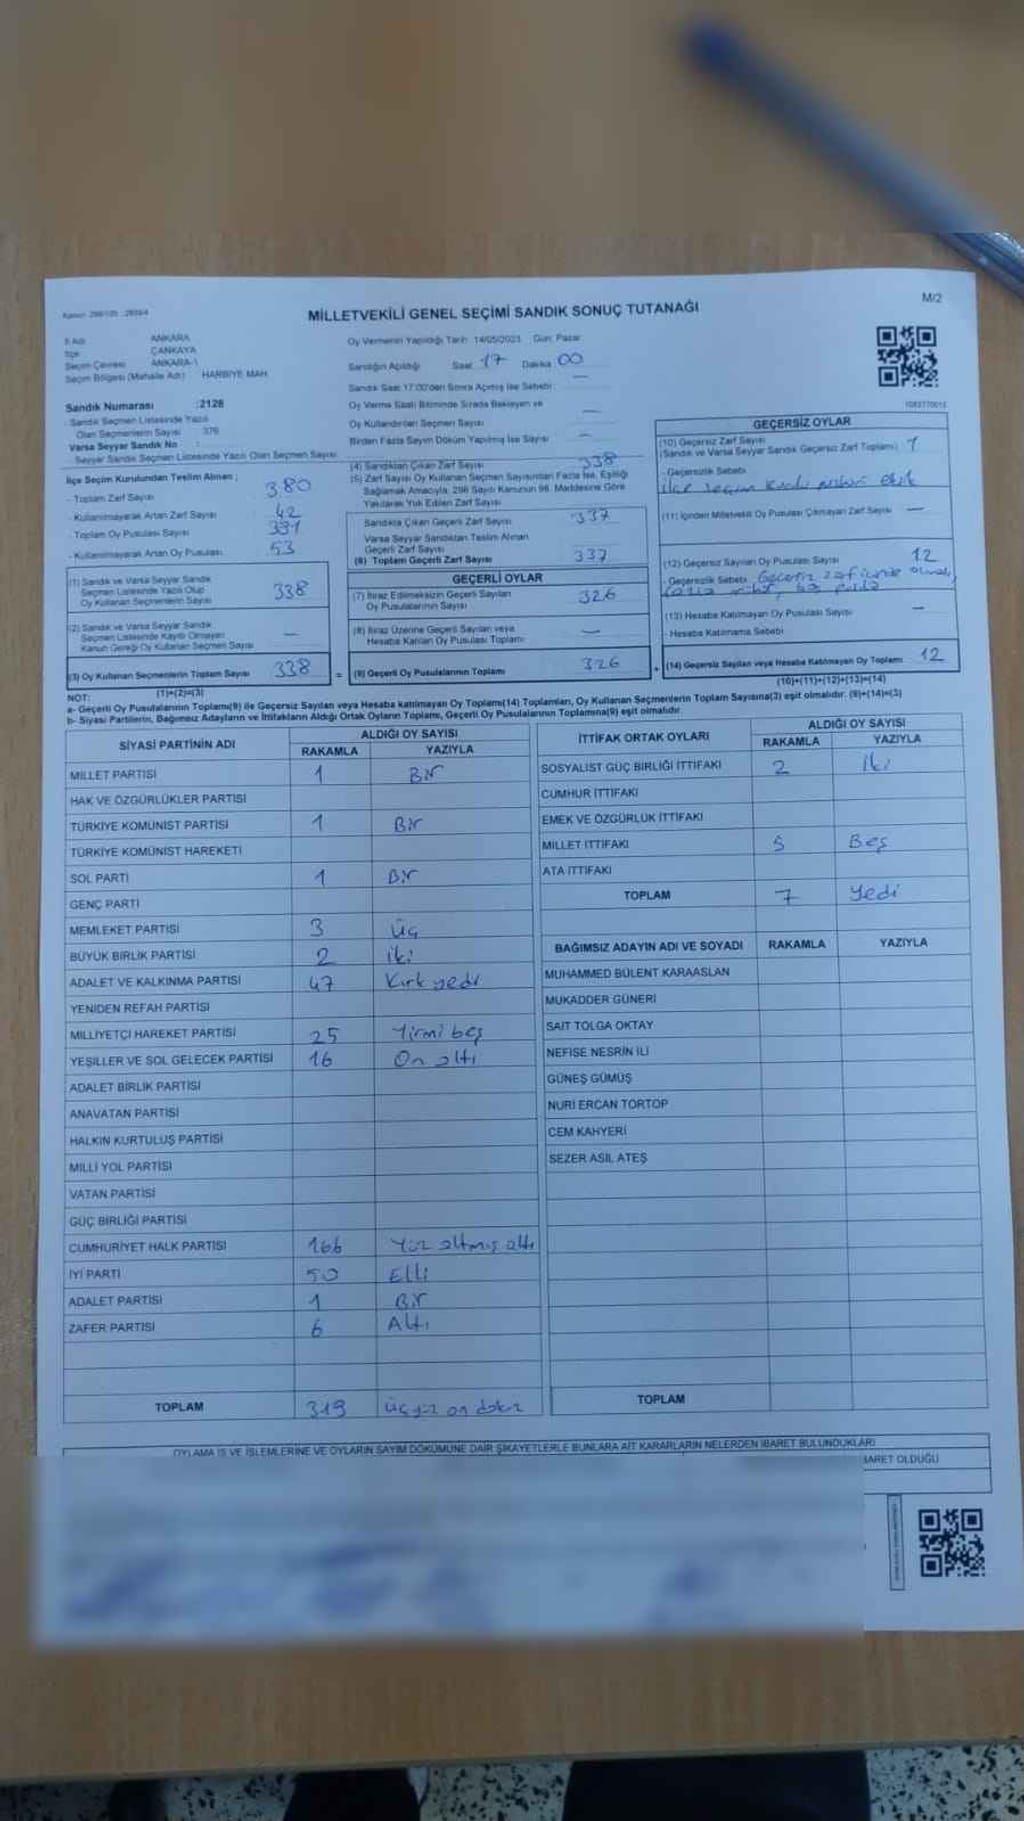 MİLLETVEKİLİ GENEL SEÇİMİ SANDIK SONUÇ TUTANAĞI
M/2
İl Adı ANKARA
İlçe ÇANKAYA
Seçim Çevresi ANKARA-1
Seçim Bölgesi (Mahalle Adı) HARBİYE MAH.
Sandık Numarası :2128
Sandık Seçmen Listesinde Yazılı
Olan Seçmenlerin Sayısı 376
Varsa Seyyar Sandık No :
Seyyar Sandık Seçmen Listesinde Yazılı Olan Seçmen Sayısı
İlçe Seçim Kurulundan Teslim Alınan ;
- Toplam Zarf Sayısı 380
- Kullanılmayarak Artan Zarf Sayısı 42
- Toplam Oy Pusulası Sayısı 391
- Kullanılmayarak Artan Oy Pusulası 53
(1) Sandık ve Varsa Seyyar Sandık
Seçmen Listesinde Yazılı Olup
Oy Kullanan Seçmenlerin Sayısı 338
(2) Sandık ve Varsa Seyyar Sandık
Seçmen Listesinde Kayıtlı Olmayan
Kanun Gereği Oy Kullanan Seçmen Sayısı —
(3) Oy Kullanan Seçmenlerin Toplam Sayısı 338 =
(1)+(2)=(3)
Oy Vermenin Yapıldığı Tarih 14/05/2023 Gün: Pazar
Sandığın Açıldığı Saat 17 Dakika 00
Sandık Saat 17:00'den Sonra Açılmış İse Sebebi : —
Oy Verme Saati Bitiminde Sırada Bekleyen ve
Oy Kullandırılan Seçmen Sayısı —
Birden Fazla Sayım Döküm Yapılmış İse Sayısı —
(4) Sandıktan Çıkan Zarf Sayısı 338
(5) Zarf Sayısı Oy Kullanan Seçmen Sayısından Fazla İse, Eşitliği
Sağlamak Amacıyla, 298 Sayılı Kanunun 98. Maddesine Göre
Yakılarak Yok Edilen Zarf Sayısı
Sandıkta Çıkan Geçerli Zarf Sayısı 337
Varsa Seyyar Sandıktan Teslim Alınan
Geçerli Zarf Sayısı
(6) Toplam Geçerli Zarf Sayısı 337
GEÇERLİ OYLAR
(7) İtiraz Edilmeksizin Geçerli Sayılan
Oy Pusulalarının Sayısı 326
(8) İtiraz Üzerine Geçerli Sayılan veya
Hesaba Katılan Oy Pusulası Toplamı —
(9) Geçerli Oy Pusulalarının Toplamı 326 +
GEÇERSİZ OYLAR
(10) Geçersiz Zarf Sayısı
(Sandık ve Varsa Seyyar Sandık Geçersiz Zarf Toplamı) 1
- Geçersizlik Sebebi
ilçe seçim kurulu mührü eksik
(11) İçinden Milletvekili Oy Pusulası Çıkmayan Zarf Sayısı —
(12) Geçersiz Sayılan Oy Pusulası Sayısı 12
- Geçersizlik Sebebi
(13) Hesaba Katılmayan Oy Pusulası Sayısı —
- Hesaba Katılmama Sebebi
(14) Geçersiz Sayılan veya Hesaba Katılmayan Oy Toplamı 12
(10)+(11)+(12)+(13)=(14)
NOT:
a- Geçerli Oy Pusulalarının Toplamı(9) ile Geçersiz Sayılan veya Hesaba katılmayan Oy Toplamı(14) Toplamları, Oy Kullanan Seçmenlerin Toplam Sayısına(3) eşit olmalıdır. (9)+(14)=(3)
b- Siyasi Partilerin, Bağımsız Adayların ve İttifakların Aldığı Ortak Oyların Toplamı, Geçerli Oy Pusulalarının Toplamına(9) eşit olmalıdır.
SİYASİ PARTİNİN ADI ALDIĞI OY SAYISI
RAKAMLA YAZIYLA
MİLLET PARTİSİ 1 Bir
HAK VE ÖZGÜRLÜKLER PARTİSİ
TÜRKİYE KOMÜNİST PARTİSİ 1 Bir
TÜRKİYE KOMÜNİST HAREKETİ
SOL PARTİ 1 Bir
GENÇ PARTİ
MEMLEKET PARTİSİ 3 Üç
BÜYÜK BİRLİK PARTİSİ 2 iki
ADALET VE KALKINMA PARTİSİ 47 Kırk yedi
YENİDEN REFAH PARTİSİ
MİLLİYETÇİ HAREKET PARTİSİ 25 Yirmi beş
YEŞİLLER VE SOL GELECEK PARTİSİ 16 On altı
ADALET BİRLİK PARTİSİ
ANAVATAN PARTİSİ
HALKIN KURTULUŞ PARTİSİ
MİLLİ YOL PARTİSİ
VATAN PARTİSİ
GÜÇ BİRLİĞİ PARTİSİ
CUMHURİYET HALK PARTİSİ 166 Yüz altmış altı
İYİ PARTİ 50 Elli
ADALET PARTİSİ 1 Bir
ZAFER PARTİSİ 6 Altı
TOPLAM 319 üçyüz on dokuz
İTTİFAK ORTAK OYLARI ALDIĞI OY SAYISI
RAKAMLA YAZIYLA
SOSYALİST GÜÇ BİRLİĞİ İTTİFAKI 2 İki
CUMHUR İTTİFAKI
EMEK VE ÖZGÜRLÜK İTTİFAKI
MİLLET İTTİFAKI 5 Beş
ATA İTTİFAKI
TOPLAM 7 Yedi
BAĞIMSIZ ADAYIN ADI VE SOYADI RAKAMLA YAZIYLA
MUHAMMED BÜLENT KARAASLAN
MUKADDER GÜNERİ
SAİT TOLGA OKTAY
NEFİSE NESRİN İLİ
GÜNEŞ GÜMÜŞ
NURİ ERCAN TORTOP
CEM KAHYERİ
SEZER ASIL ATEŞ
TOPLAM
OYLAMA İŞ VE İŞLEMLERİNE VE OYLARIN SAYIM DÖKÜMÜNE DAİR ŞİKAYETLERLE BUNLARA AİT KARARLARIN NELERDEN İBARET BULUNDUKLARI
BARET OLDUĞU